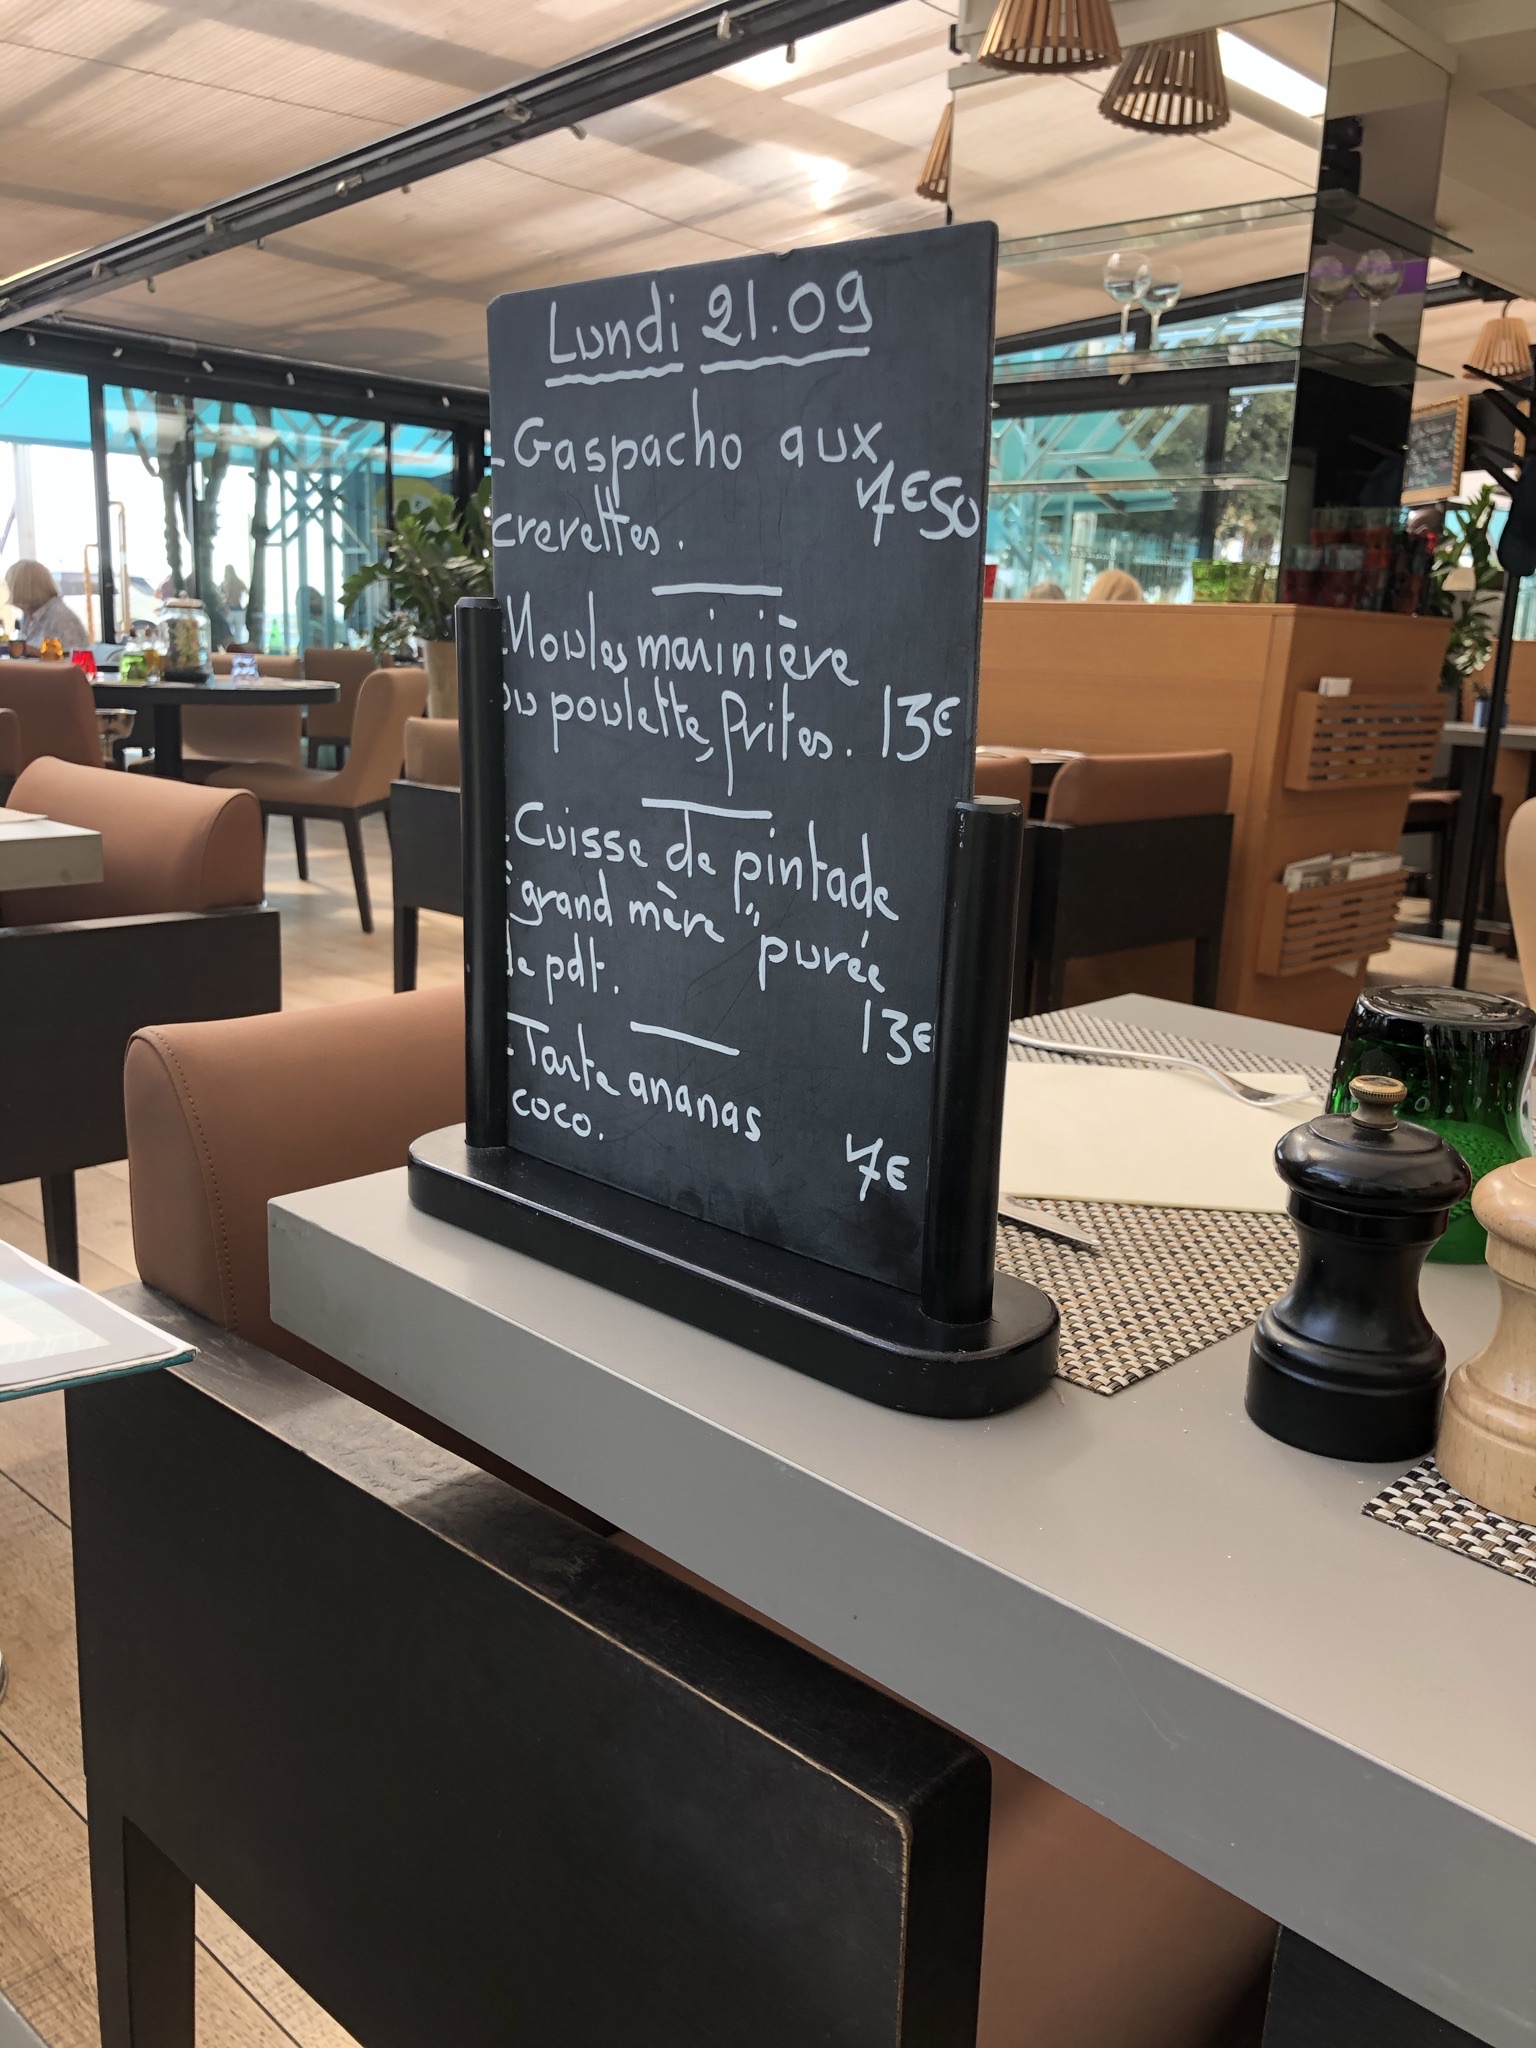 Lundi 21.09
- Gaspacho aux
crevettes. 7€50
- Moules marinière
ou poulette, frites. 13€
- Cuisse de pintade
"grand mère" purée
de pdt.
13€
- Tarte ananas
coco.
7€